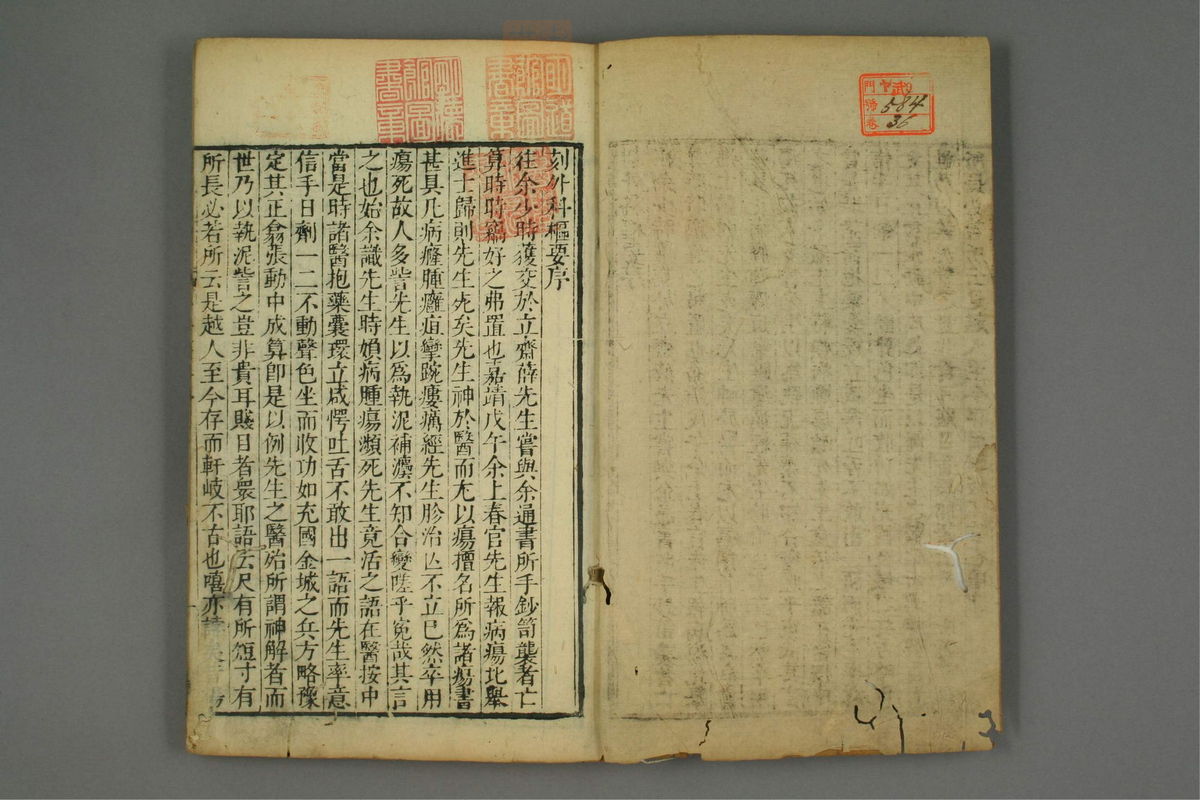 刻外科樞要序
往余少時獲交於立齋薛先生嘗與余通書所手鈔笥襲者亡
算時時竊好之弗置也嘉靖戊午余上春官先生報病瘍北舉
進士歸則先生死矣先生神於醫而尤以瘍擅名所爲諸瘍書
甚具凡病癃腫癰疽攣踠瘻痛經先生胗治亾不立已然卒用
瘍死故人多訾先生以爲執泥補瀀不知合變嗟乎寃哉其言
之也始余識先生時嬪病腫瘍瀕死先生竟活之語在醫按中
當是時諸醫抱藥囊環立咸愕吐舌不敢出一語而先生率意
信手日劑一二不動聲色坐而收功如充國金城之兵方略豫
定其正翕張動中成算卽是以例先生之醫殆所謂神解者而
世乃以執泥訾之豈非貴耳賤目者衆耶語云尺有所短寸有
所長必若所云是越人至今存而軒岐不古也嘻亦
武
門
號 584
卷 36